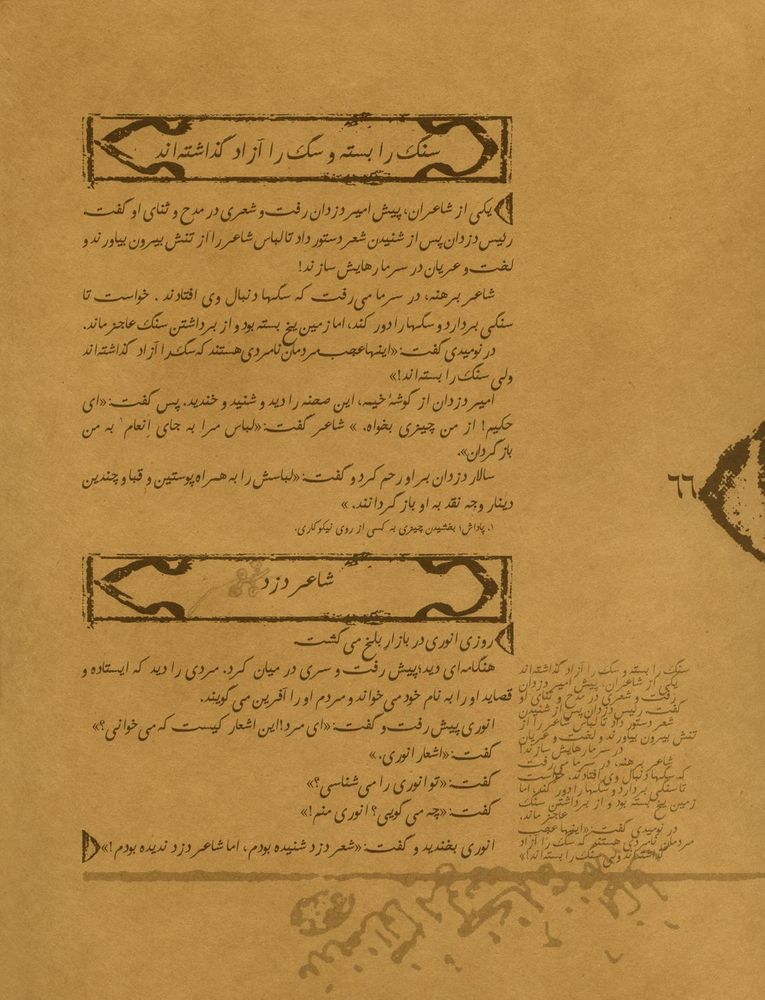 سنگ را بسته و سگ را آزاد گذاشته‌اند
یکی از شاعران، پیش امیر دزدان رفت و شعری در مدح و ثنای او گفت.
رئیس دزدان پس از شنیدن شعر دستور داد تا لباس شاعر را از تنش بیرون بیاورند و
لخت و عریان در سرما رهایش سازند!
شاعر برهنه، در سرما می‌رفت که سگها دنبال وی افتادند. خواست تا
سنگی بردارد و سگها را دور کند، اما زمین یخ بسته بود و از برداشتن سنگ عاجز ماند.
در نومیدی گفت: «اینها عجب مردمان نامردی هستند که سگ را آزاد گذاشته‌اند
ولی سنگ را بسته‌اند!»
امیر دزدان از گوشهٔ خیمه، این صحنه را دید و شنید و خندید. پس گفت: «ای
حکیم! از من چیزی بخواه. » شاعر گفت: «لباس مرا به جای اِنعام۱ به من
بازگردان».
سالار دزدان بر او رحم کرد و گفت: «لباسش را به همراه پوستین و قبا و چندین
دینار وجه نقد به او باز گردانند. »
۱. پاداش؛ بخشیدن چیزی به کسی از روی نیکوکاری.
شاعر دزد
روزی انوری در بازار بلخ می گشت.
هنگامه‌ای دید؛ پیش رفت و سری در میان کرد. مردی را دید که ایستاده و
قصاید او را به نام خود می خواند و مردم او را آفرین می گویند.
انوری پیش رفت و گفت: «ای مرد! این اشعار کیست که می خوانی؟»
گفت: «اشعار انوری. »
گفت: «تو انوری را می شناسی؟»
گفت: «چه می گویی؟ انوری منم!»
انوری بخندید و گفت: «شعر دزد شنیده بودم، اما شاعر دزد ندیده بودم!»
٦٦
سنگ را بسته و سگ را آزاد گذاشته‌اند
یکی از شاعران، پیش امیر دزدان
رفت و شعری در مدح و ثنای او
گفت. رئیس دزدان پس از شنیدن
شعر دستور داد تا لباس شاعر را از
تنش بیرون بیاورند و لخت و عریان
در سرما رهایش سازند!
شاعر برهنه، در سرما می‌رفت
که سگها دنبال وی افتادند. خواست
تا سنگی بردارد و سگها را دور کند، اما
زمین یخ بسته بود و از برداشتن سنگ
عاجز ماند.
در نومیدی گفت: «اینها عجب
مردمان نامردی هستند که سگ را آزاد
گذاشته‌اند ولی سنگ را بسته‌اند!»